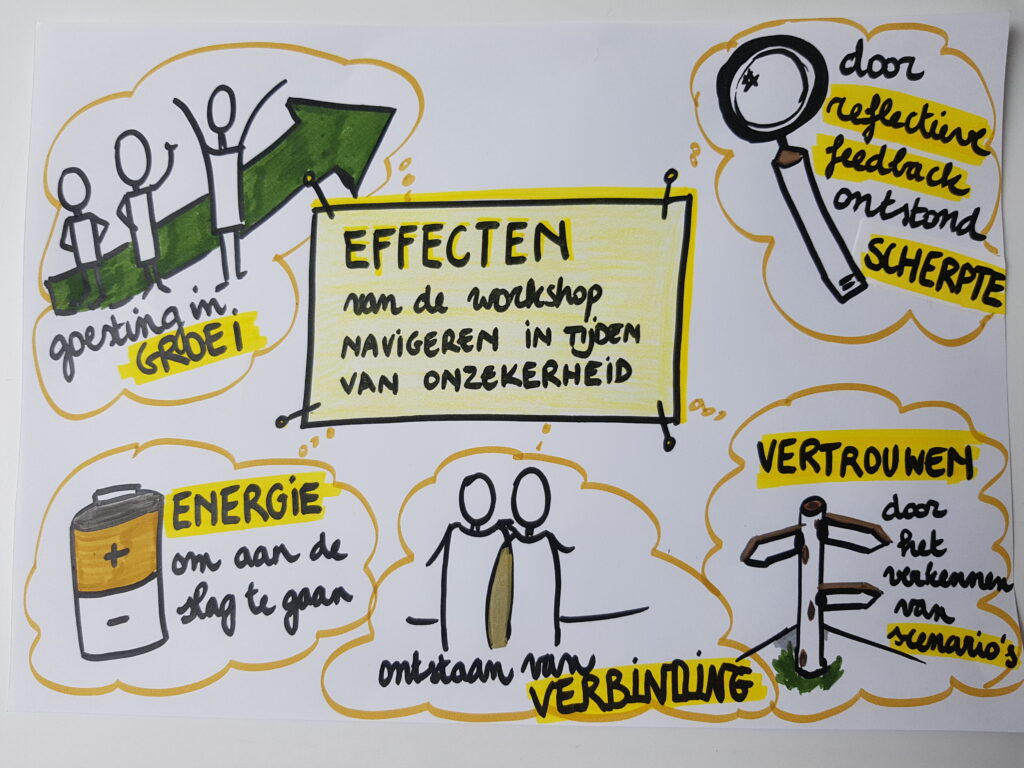 EFFECTEN
van de workshop
NAVIGEREN IN TIJDEN
VAN ONZEKERHEID
goesting in
GROEI
door
reflectieve
feedback
ontstond
SCHERPTE
+
-
ENERGIE
om aan de
slag te gaan
ontstaan van
VERBINDING
VERTROUWEN
door
het
verkennen
van
scenario's